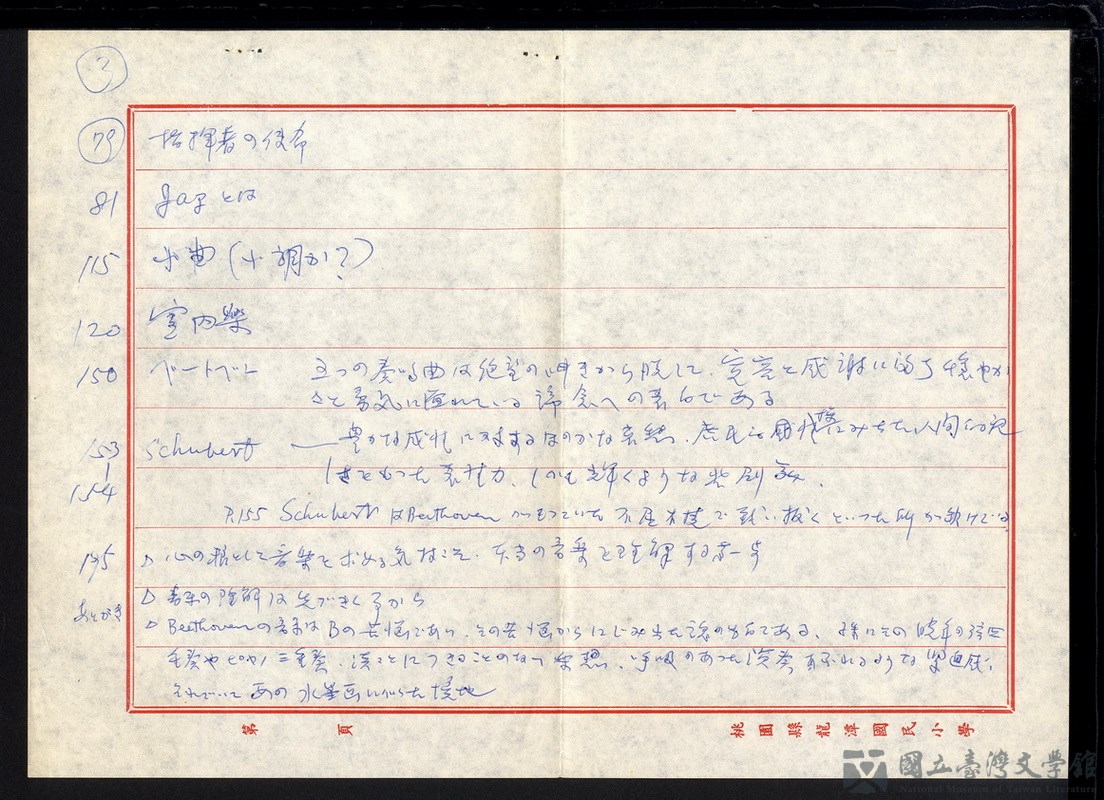 3
79 指揮者の使命
81 Jazzとは
115 小曲(小調か?)
120 室内樂
150 ベートベン 五つの奏鳴曲は絶望の呻きから脱して、寛容と感謝に満ち穏やか
さと勇気に溢れている諦念への告白である
153 Schubert — 豊かな感性に対するほのかな哀愁、庶民的感情にみちた人间的親
154 しさをもつた表現力、しかも輝くような
P.155 SchubertはBeethovenがもつていた不屈不撓で戦い抜くといつた所が欠けている
195 △ 心の糧として音楽を求める気持こそ、本当の音楽を理解する第一歩
あとがき △ 音楽の理解は先づきく事から
△ Beethovenの音楽はBの苦悩であり、その苦悩からにじみ出た諦めである、殊にその晩年の弦四
重奏やピアノ三重奏、汲めどもつきることのない楽想、呼吸のあつた演奏 あふれるような緊迫感、
それでいてあの水墨画に似た境地
第 頁
桃園縣龍潭國民小學
國立臺灣文學館
National Museum of Taiwan Literature